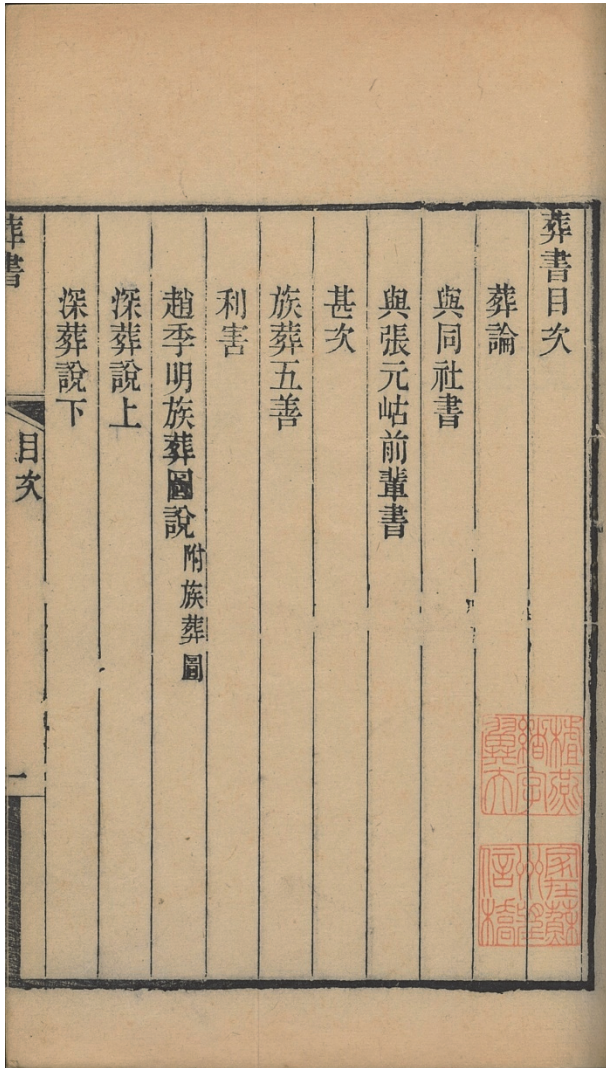 葬書目次
葬論
與同社書
與張元岵前輩書
甚次
族葬五善
利害
趙季明族葬圖說附族葬圖
深葬說上
深葬說下
葬書
目次
一
家在蘇
州望
信橋